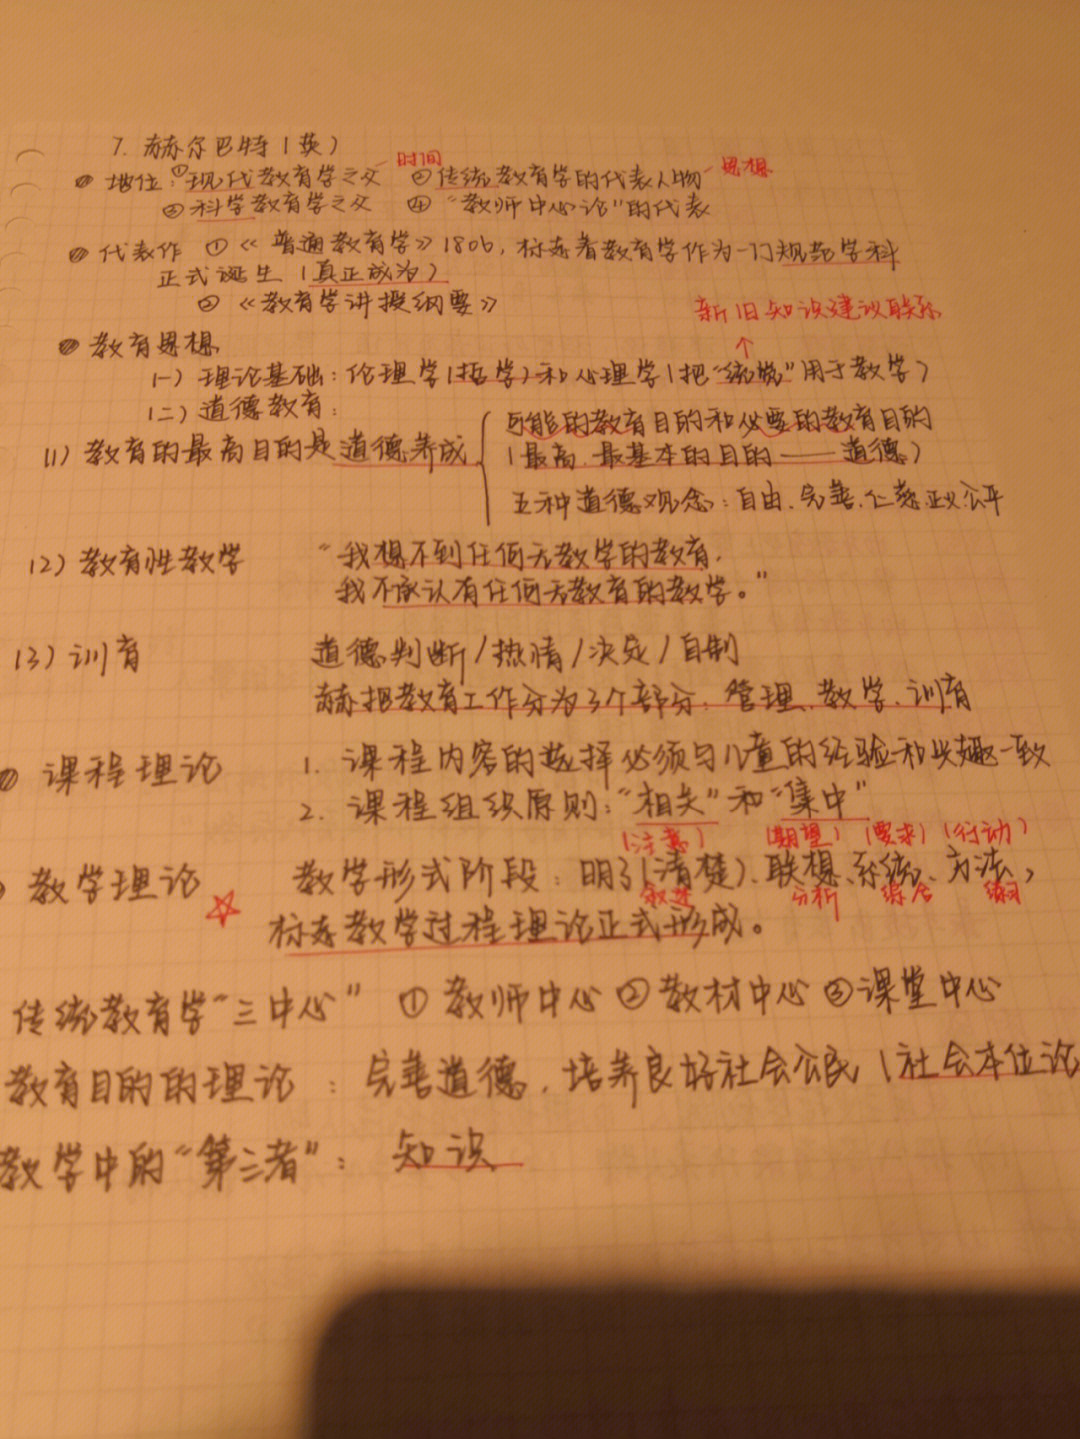 7. 赫尔巴特(英)
地位:①现代教育学之父-时间 ②传统教育学的代表人物-思想
③科学教育学之父 ④"教师中心论"的代表
代表作 ①《普通教育学》1806,标志着教育学作为一门规范学科
正式诞生(真正成为)
②《教育学讲授纲要》
新旧知识建议联系
↑
教育思想
(一)理论基础:伦理学(哲学)和心理学(把"统觉"用于教学)
(二)道德教育:
可能的教育目的和必要的教育目的
(1)教育的最高目的是道德养成
(最高、最基本的目的——道德)
五种道德观念:自由、完善、仁慈、正义、公平
(2)教育性教学 "我想不到任何无教学的教育,
我不承认有任何无教育的教学。"
(3)训育 道德判断/热情/决定/自制
赫把教育工作分为3个部分:管理、教学、训育
课程理论 1. 课程内容的选择必须与儿童的经验和兴趣一致
2. 课程组织原则:"相关"和"集中"
(注意) (期望) (要求) (行动)
教学理论 ☆ 教学形式阶段:明了(清楚)、联想、系统、方法,
叙述 分析 综合 练习
标志教学过程理论正式形成。
传统教育学"三中心" ①教师中心 ②教材中心 ③课堂中心
教育目的的理论:完善道德,培养良好社会公民(社会本位论
教学中的"第三者":知识